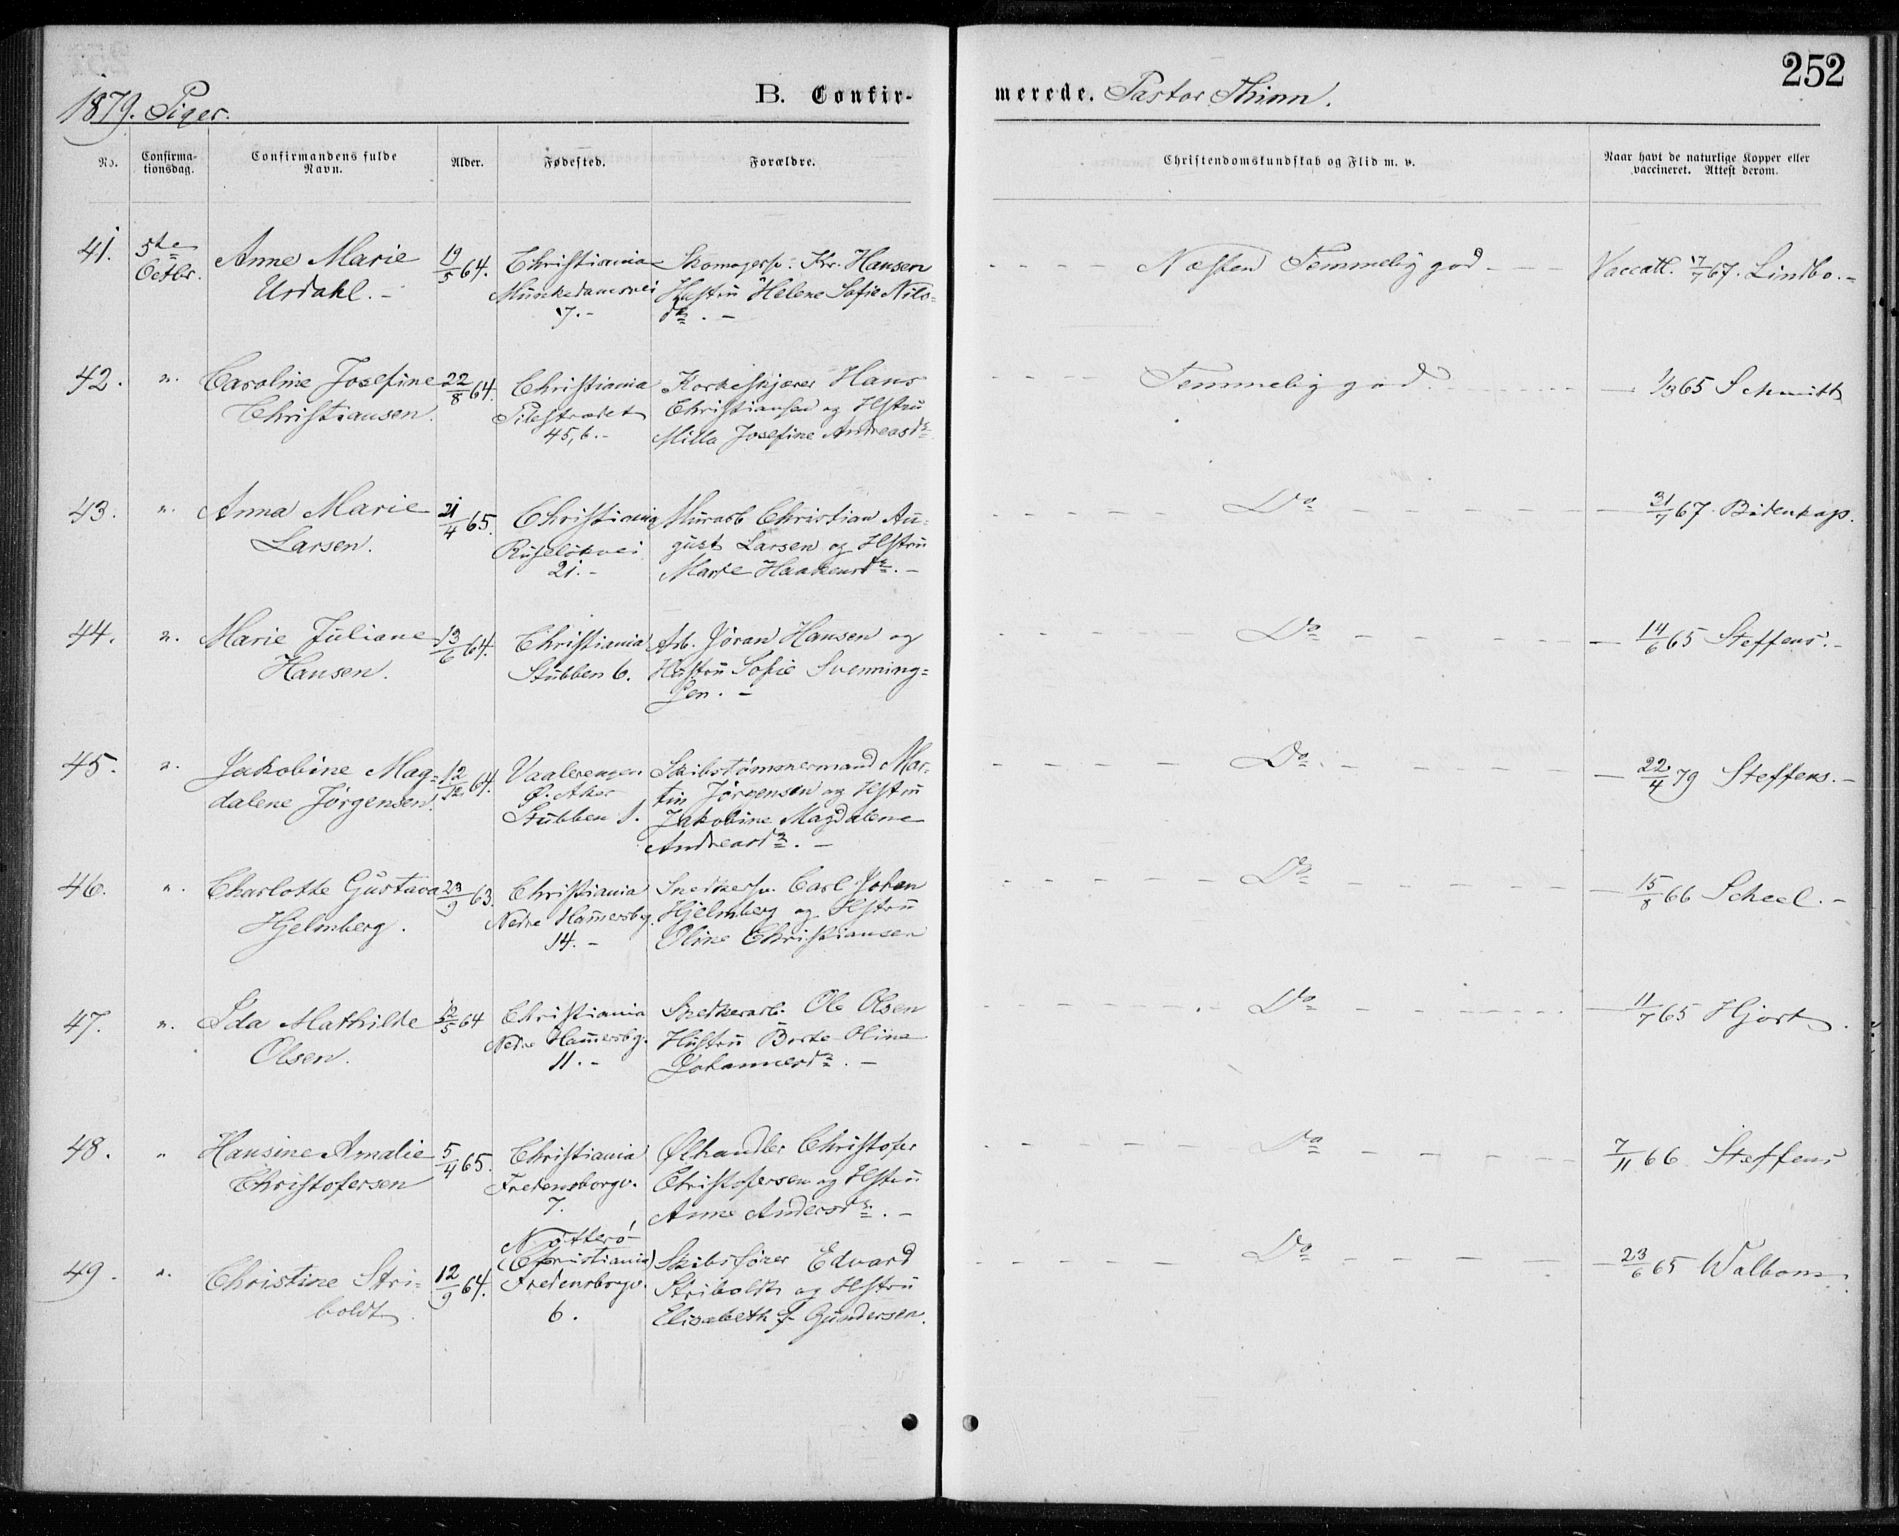 252
1879. Piger.
B. Confir-
merede. Pastor Thinn.
No.
Confirma-
tionsdag.
Confirmandens fulde
Navn.
Alder.
Fødested.
Forældre.
Christendomskundskab og Flid m. v.
Naar havt de naturlige Kopper eller
vaccineret. Attest derom.
41. 5te Anne Marie 19/5 64. Christiania Skomagersv. Kr. Hansen Næsten Temmelig god Vaccatt. 7/7 67. Lindbo.-
Octbr. Usdahl.- Munkedamsvei Hustru Helene Sofie Nils-
7.- dr.-
42. " Caroline Josefine 22/8 64. Christiania Korkeskjærer Hans Temmelig god. 1/3 65 Schmitt
Christiansen. Pilestrædet Christiansen og Hstru
45, 6.- Milla Josefine Andreasdr
43. " Anna Marie 21/4 65. Christiania Murarb Christian Au- Do 31/7 67. Bidenkap.
Larsen. Ruseløkvei gust Larsen og Hstru
21.- Marie Haakensdr.-
44. " Marie Juliane 13/6 64. Christiania Arb. Jøran Hansen og Do 14/6 65 Steffens.-
Hansen. Stubben 6. Hustru Sofie Svenning-
sen.-
45. " Jakobine Mag- 12/12 64. Vaalerengen Skibstømmermand Mar- Do 22/4 79 Steffens.-
dalene Jørgensen. Ø. Aker tin Jørgensen og Hstru
Stubben 1. Jakobine Magdalene
Andreasdr.-
46. " Charlotte Gustava 23/9 63. Christiania Snedkersv. Carl Johan Do 15/8 66 Scheel.-
Hjelmberg. Nedre Hamersbg. Hjelmberg og Hstru
14.- Oline Christiansen
47. " Ida Mathilde 12/5 64 Christiania Snedkerarb. Ole Olsen Do 11/7 65 Hjort.
Olsen. Nedre Hamersbg. Hustru Berte Oline
11.- Johannesdr.-
48. " Hansine Amalie 5/4 65. Christiania Ølhandler Christofer Do 7/11 66 Steffens
Christofersen Fredensborgv. Christofersen og Hstru
7. Anne Andersdr.-
Nøtterø
49. " Christine Stri- 12/9 64. (Christiania) Skibsfører Edvard Do 23/6 65 Walbom.
boldt. Fredensborgv. Striboldt og Hstru
6. Elisabeth f Gundersen.